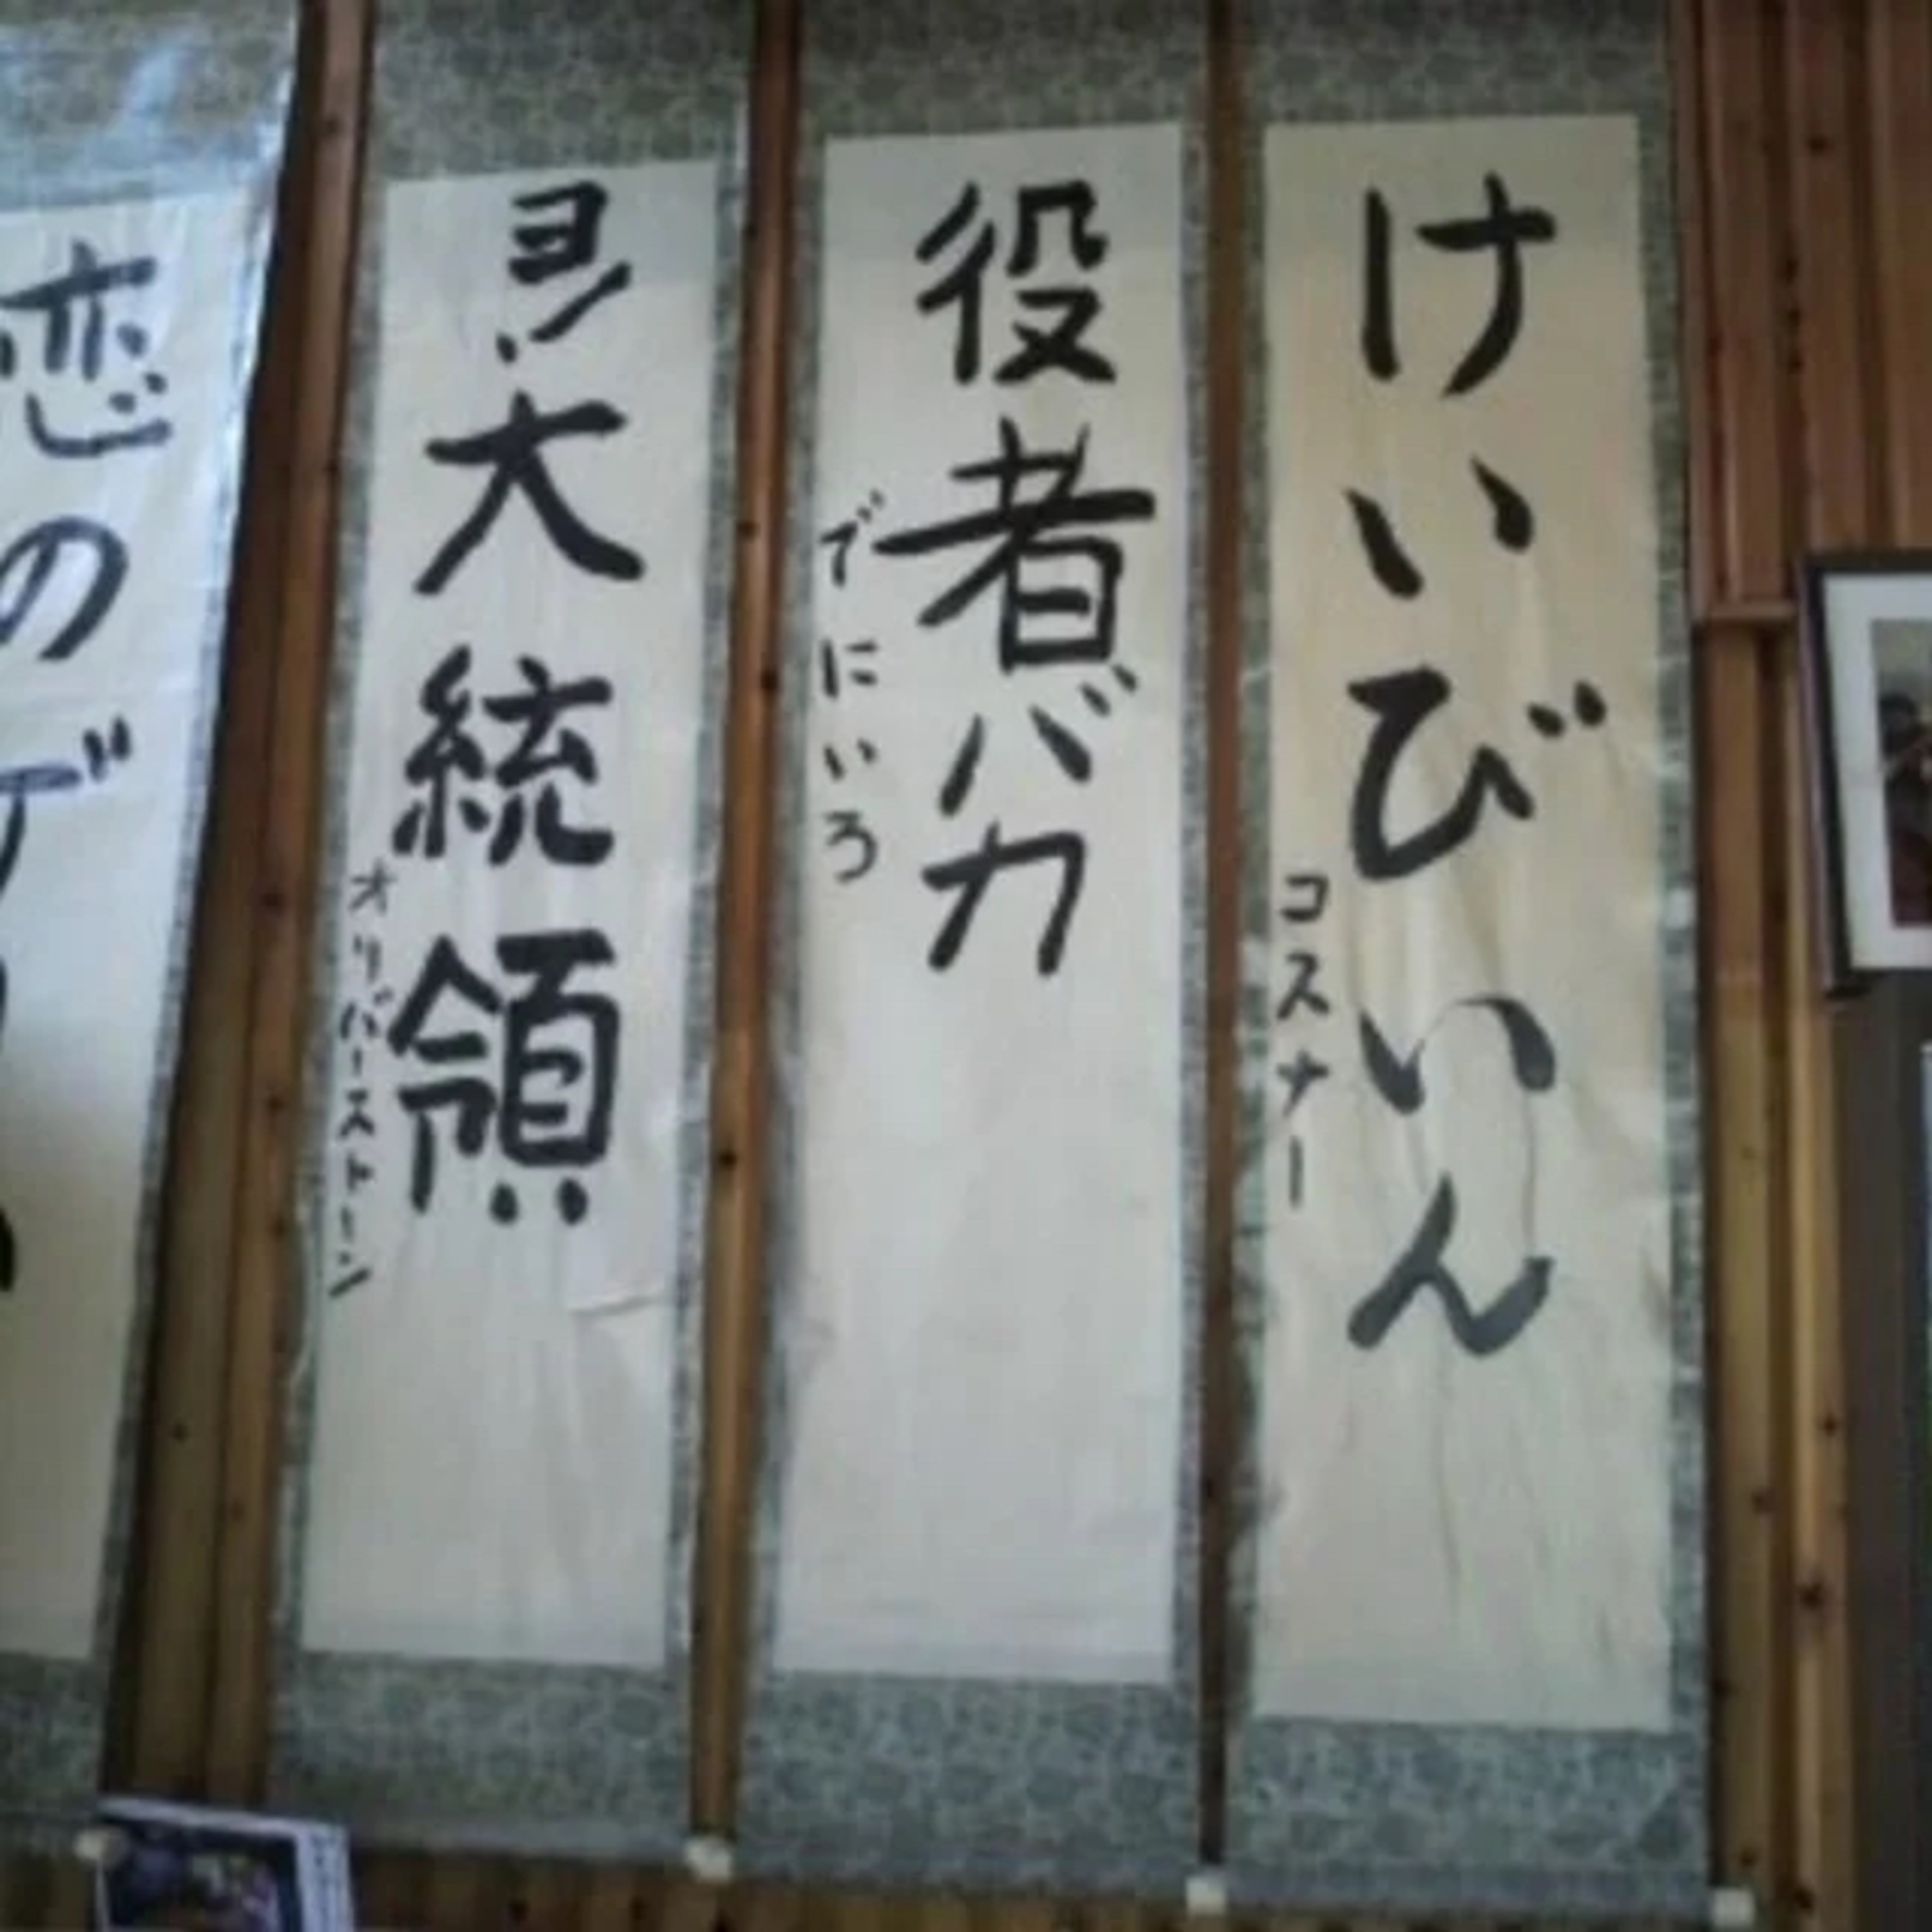 けいびいん
コスナー
役者バカ
でにいろ
ヨッ大統領
オリバーストーン
恋のデ